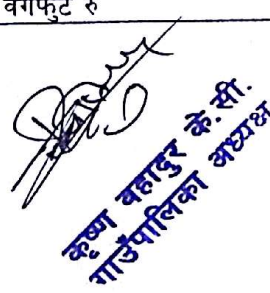 वर्गफुट रु
कृष्ण बहादुर के.सी.
गाउँपालिका अध्यक्ष